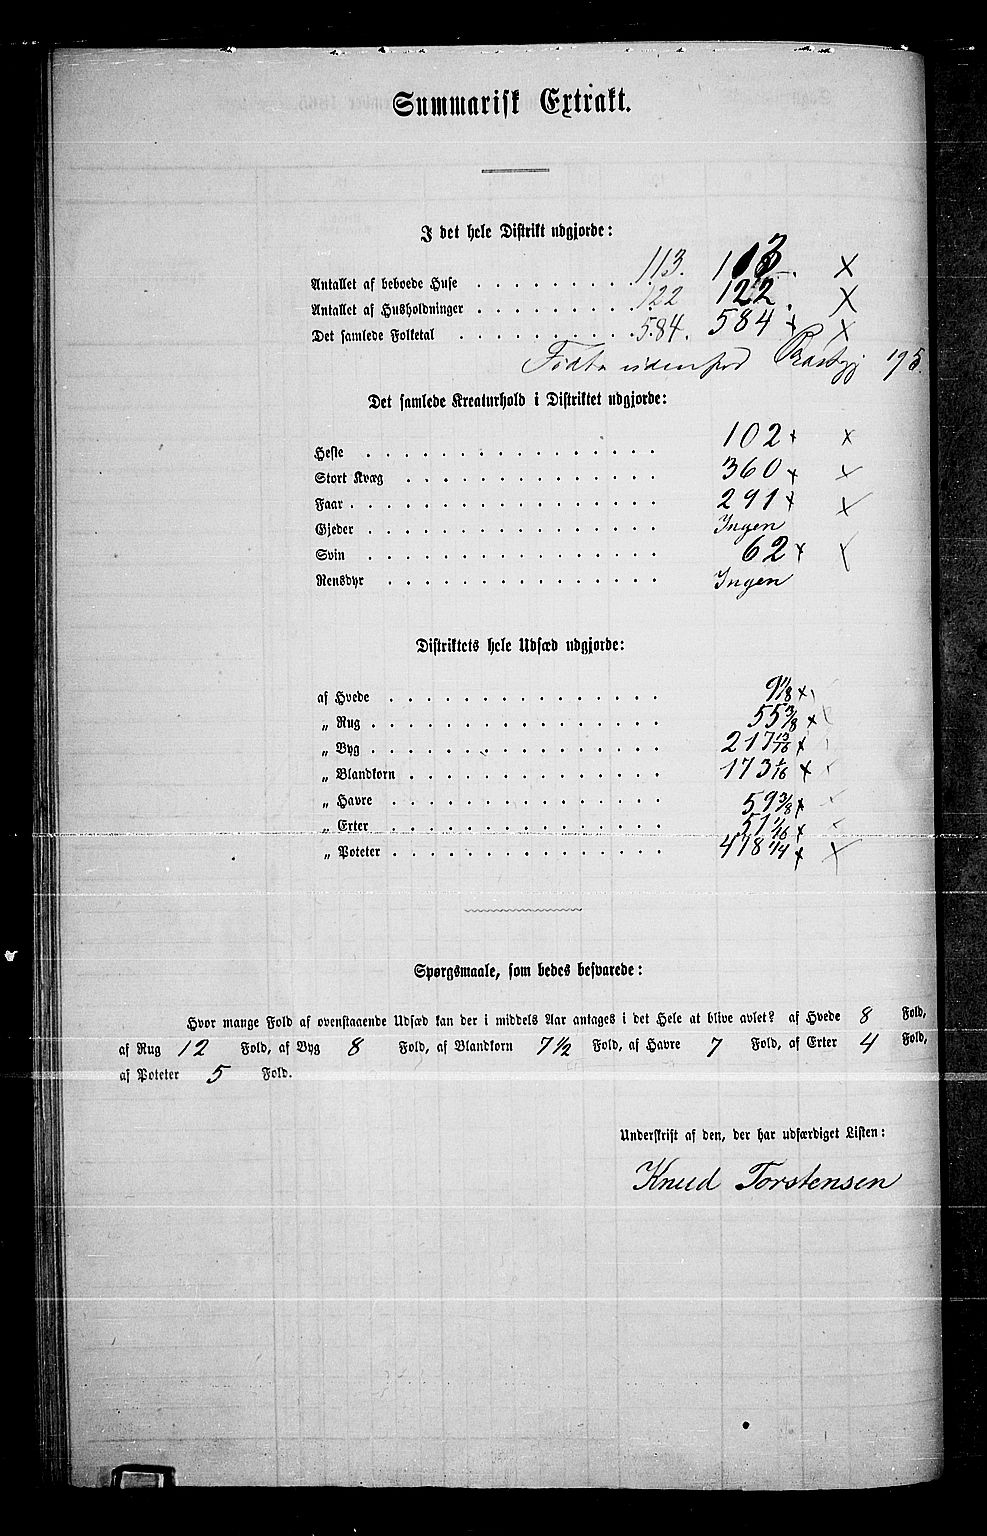 Summarisk Extrakt.
I det hele Distrikt udgjorde:
Antallet af beboede Huse . . . . . . . . 113. 113. ×
Antallet af Husholdninger . . . . . . . . 122 122. ×
Det samlede Folketal . . . . . . . . 584. 584 × ×
Fødte udenfor 195.
Det samlede Kreaturhold i Distriktet udgjorde:
Heste . . . . . . . . 102 × ×
Stort Kvæg . . . . . . . . 360 × ×
Faar . . . . . . . . 291 × ×
Gjeder . . . . . . . . Ingen
Svin . . . . . . . . 62 × ×
Rensdyr . . . . . . . . Ingen
Distriktets hele Udsæd udgjorde:
af Hvede . . . . . . . . ×
„ Rug . . . . . . . . 55 3/8 ×
„ Byg . . . . . . . . 217 13/16 ×
„ Blandkorn . . . . . . . . 173 ×
„ Havre . . . . . . . . 59 3/8 ×
„ Erter . . . . . . . . 51 ×
„ Poteter . . . . . . . . 478 1/4 × ×
Spørgsmaale, som bedes besvarede:
Hvor mange Fold af ovenstaaende Udsæd kan der i middels Aar antages i det Hele at blive avlet? af Hvede 8 Fold,
af Rug 12 Fold, af Byg 8 Fold, af Blandkorn 7 1/2 Fold, af Havre 7 Fold, af Erter 4 Fold,
af Poteter 5 Fold.
Underskrift af den, der har udfærdiget Listen:
Knud Torstensen